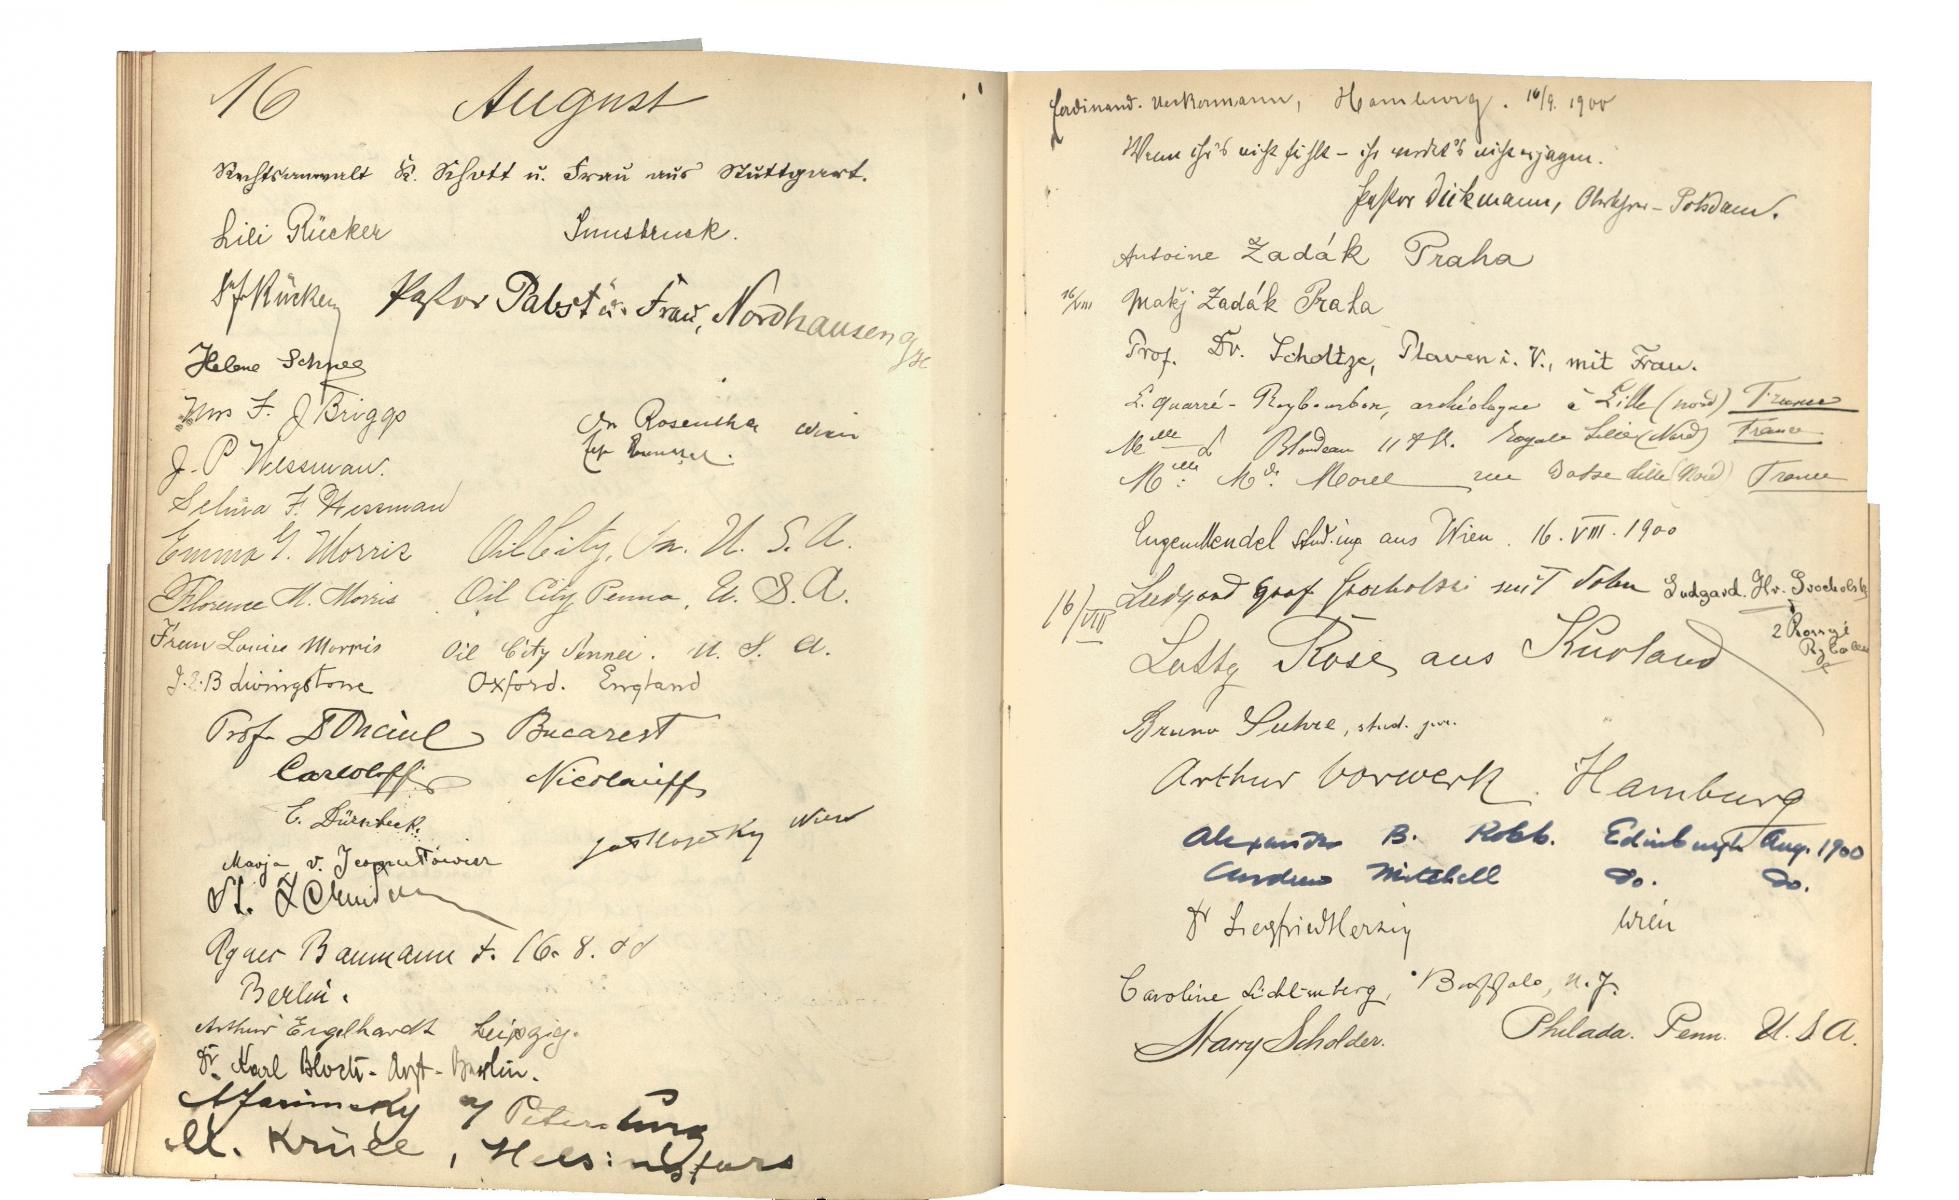 16 August
Rechtsanwalt K. Schott u. Frau aus Stuttgart.
Lili Rücker Innsbruck.
Pastor Pabst u. Frau, Nordhausen
Helene Schnee
Mrs F. J Briggs
Dr Rosenthal Wien
J. P Wessman.
Selma F. Wessman
Emma G. Morris Oil City, Pa. U. S. A.
Florence M. Morris Oil City Penna, U. S. A.
Fran Louise Morris Oil City Penna. U. S. A.
Livingstone Oxford. England
Prof. Bucarest
E. Dürnbeck
Wien
Marja v.
St.
Agnes Baumann t. 16. 8. 00
Berlin.
Arthur Engelhardt Leipzig.
Dr. Karl Bloch - Arzt - Berlin.
Petersburg
M. Kruse, Helsingfors
Ferdinand Ueckermann, Hamburg. 16/9. 1900
Wenn ihr's nicht fühlt – ihr werdet's nicht erjagen.
Pastor Dickmann, Potsdam.
Antoine Žadák Praha
16/VIII Žadák Praha
Prof. Dr. Scholtze, Plauen i. V., mit Frau.
L. Quarré - Reybourbon, archéologue à Lille (nord) France
Melle Blondeau Royale Lille (Nord) France
Melle Morel rue Lille (Nord) France
Eugen Mendel stud. ing aus Wien. 16. VIII. 1900
16/VIII Ludgard Graf Grocholski mit Sohn Ludgard. Hr. Grocholski
Lotty Rose aus Kurland
Bruno Suhre, stud. jur.
Arthur Vorwerk. Hamburg
Alexander B. Robb. Edinburgh Aug. 1900
Andrew Mitchell Do. Do.
Dr Siegfried Herzig Wien
Caroline Lichtenberg, Buffalo, N.Y.
Harry Scholder. Philada. Penn. U. S A.